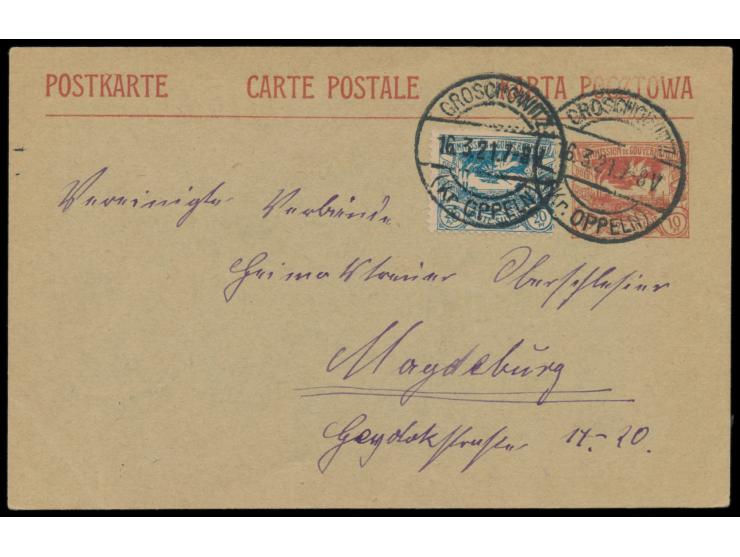 POSTKARTE CARTE POSTALE KARTA POCZTOWA
GROSCHOWITZ
16.3.21.7-8V
(Kr. OPPELN)
GROSCHOWITZ
16.3.21.7-8V
(Kr. OPPELN)
COMMISSION DE GOUVERNEMENT
20
10
Vereinigte Verbände
Heimattreuer Oberschlesier
Magdeburg
17-20.